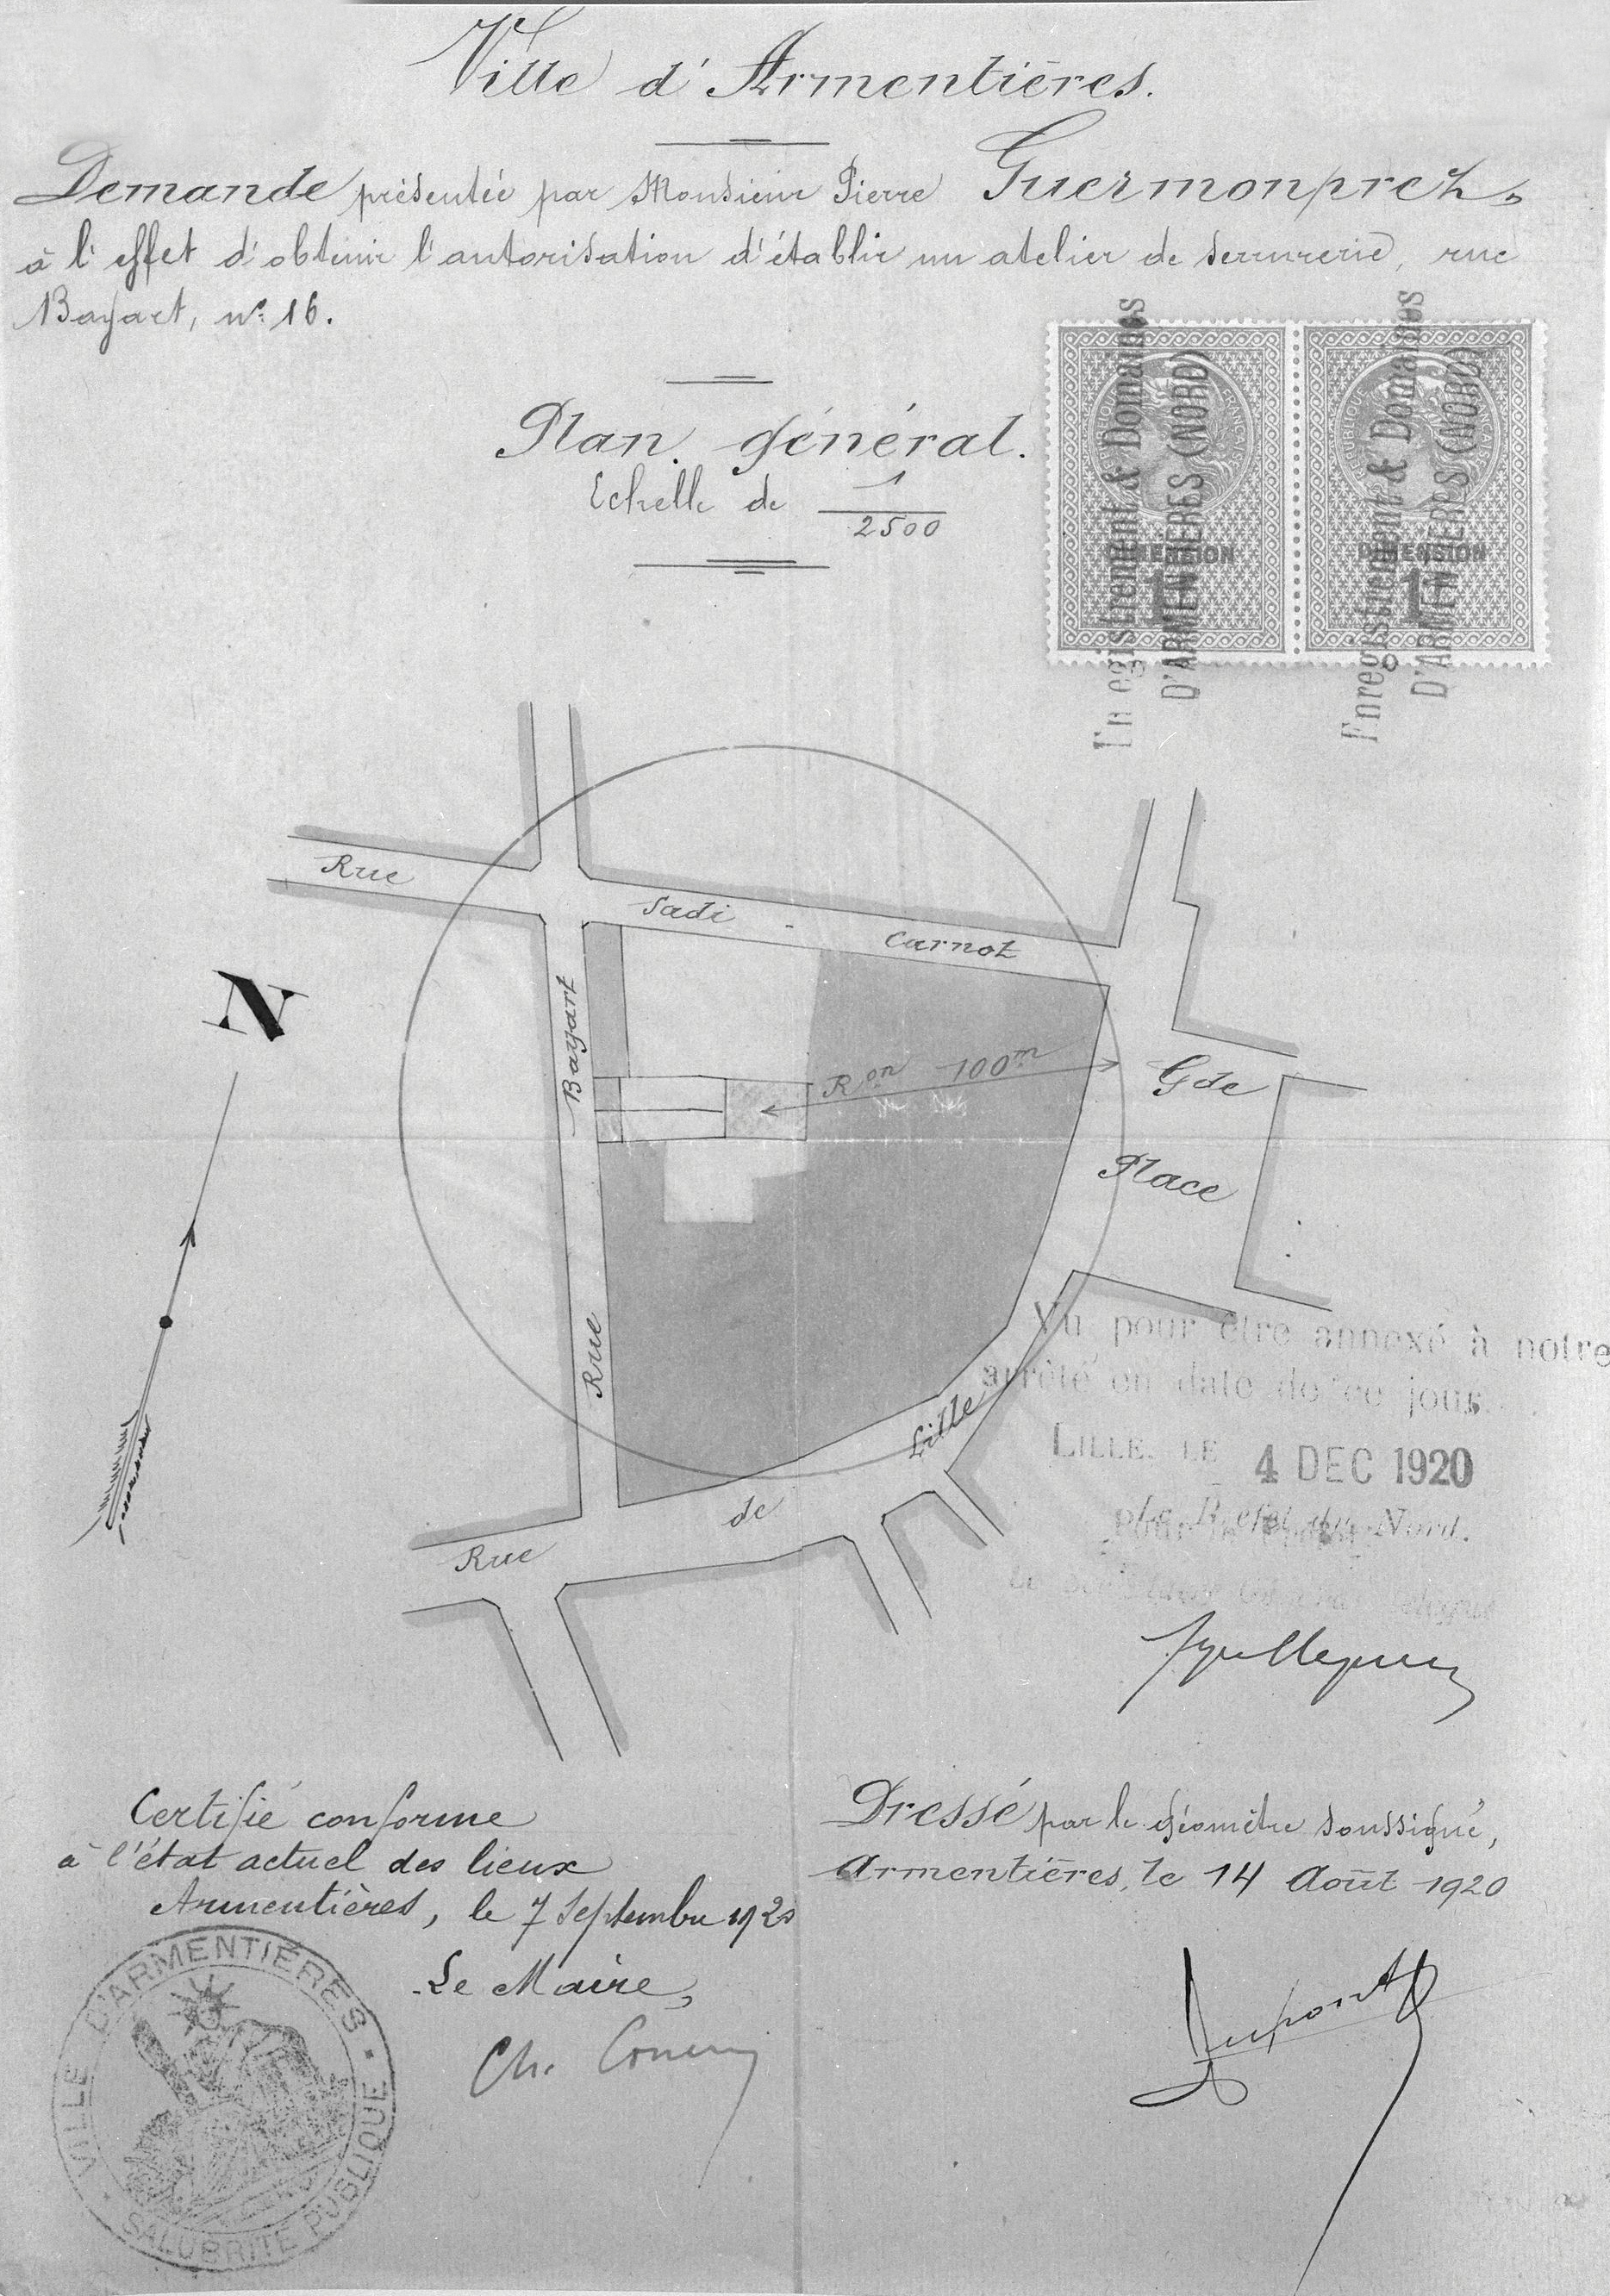 Ville d'Armentières.
Demande présentée par Monsieur Pierre Guermonprez,
à l'effet d'obtenir l'autorisation d'établir un atelier de serrurerie, rue
Bayart, n° 16.
Plan général.
Echelle de 1
2500
RÉPUBLIQUE FRANÇAISE
DIMENSION
1
Enregistrement & Domaines
D'ARMENTIÈRES (NORD)
RÉPUBLIQUE FRANÇAISE
DIMENSION
1
Enregistrement & Domaines
D'ARMENTIÈRES (NORD)
Rue Sadi - Carnot
N
Rue Bayart
Ron 100m
Gde
Place
Rue de Lille
Vu pour être annexé à notre
arrêté en date de ce jour.
LILLE, LE 4 DEC 1920
Le Préfet du Nord.
Certifié conforme
à l'état actuel des lieux
Armentières, le 7 Septembre 1920
Le Maire,
Ch.
VILLE D'ARMENTIÈRES
SALUBRITÉ PUBLIQUE
Dressé par le géomètre soussigné,
Armentières, le 14 Août 1920
Dupont